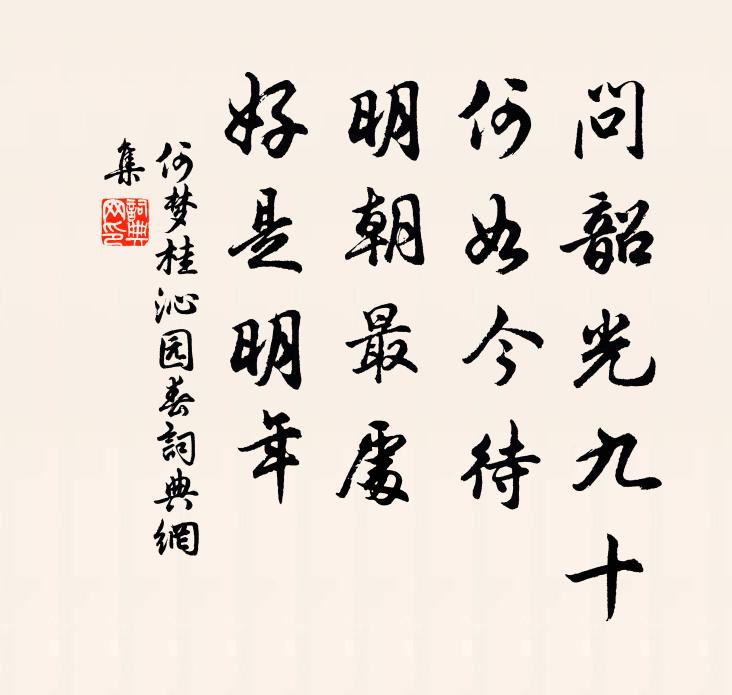 问韶光九十
何如今待
明朝最處
好是明年
何梦桂沁园春詞典網
集
詞典
网印